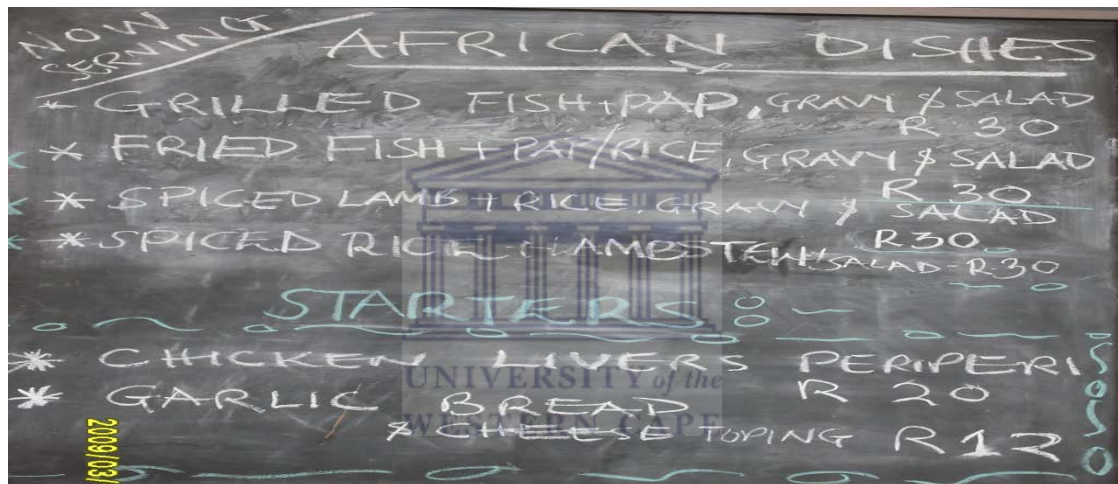 NOW
SERVING
AFRICAN DISHES
* GRILLED FISH + PAP, GRAVY & SALAD
R 30
* FRIED FISH + PAP/RICE, GRAVY & SALAD
R 30
* SPICED LAMB + RICE, GRAVY & SALAD
R30
* SPICED RICE + LAMBSTEW + SALAD - R30
STARTERS:
* CHICKEN LIVERS PERIPERI
R 20
* GARLIC BREAD
& CHEESE TOPING R12
UNIVERSITY of the
WESTERN CAPE
2009/03/